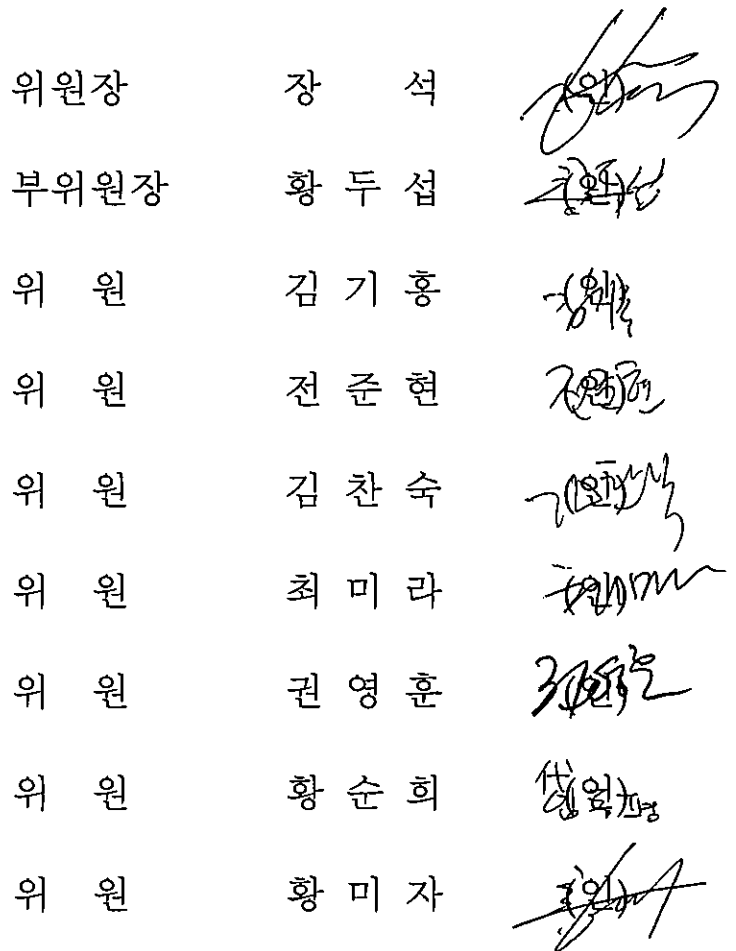 위원장 장 석 (인)
부위원장 황 두 섭 (인)
위 원 김 기 홍 (인)
위 원 전 준 현 (인)
위 원 김 찬 숙 (인)
위 원 최 미 라 (인)
위 원 권 영 훈 (인)
위 원 황 순 희 (인)
위 원 황 미 자 (인)